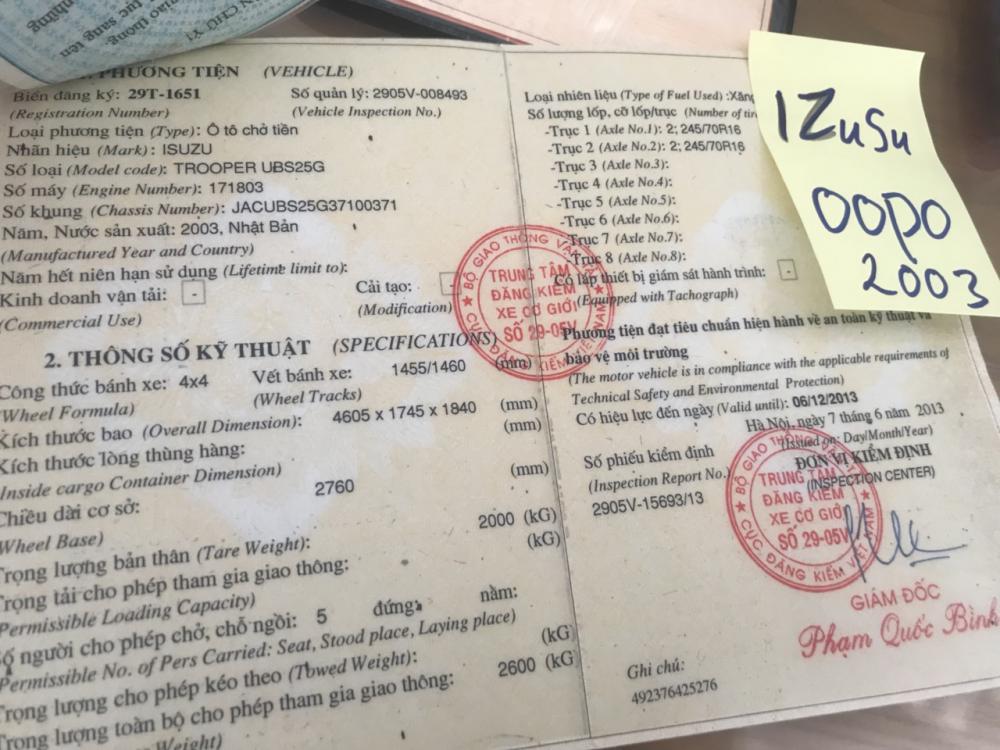 CHÚ Ý
giao thông
tục sang tên
những
PHƯƠNG TIỆN (VEHICLE)
Biển đăng ký: 29T-1651 Số quản lý: 2905V-008493
(Registration Number) (Vehicle Inspection No.)
Loại phương tiện (Type): Ô tô chở tiền
Nhãn hiệu (Mark): ISUZU
Số loại (Model code): TROOPER UBS25G
Số máy (Engine Number): 171803
Số khung (Chassis Number): JACUBS25G37100371
Năm, Nước sản xuất: 2003, Nhật Bản
(Manufactured Year and Country)
Năm hết niên hạn sử dụng (Lifetime limit to):
Kinh doanh vận tải: - Cải tạo:
(Commercial Use) (Modification)
2. THÔNG SỐ KỸ THUẬT (SPECIFICATIONS)
Công thức bánh xe: 4x4 Vết bánh xe: 1455/1460 (mm)
(Wheel Formula) (Wheel Tracks)
Kích thước bao (Overall Dimension): 4605 x 1745 x 1840 (mm)
Kích thước lòng thùng hàng: (mm)
(Inside cargo Container Dimension)
Chiều dài cơ sở: 2760 (mm)
(Wheel Base)
Trọng lượng bản thân (Tare Weight): 2000 (kG)
Trọng tải cho phép tham gia giao thông: (kG)
(Permissible Loading Capacity)
Số người cho phép chở, chỗ ngồi: 5 đứng: nằm:
(Permissible No. of Pers Carried: Seat, Stood place, Laying place)
Trọng lượng cho phép kéo theo (Towed Weight): (kG)
Trọng lượng toàn bộ cho phép tham gia giao thông: 2600 (kG)
Weight)
Loại nhiên liệu (Type of Fuel Used) :Xăng
Số lượng lốp, cỡ lốp/trục (Number of tir
-Trục 1 (Axle No.1): 2; 245/70R16
-Trục 2 (Axle No.2): 2; 245/70R16
-Trục 3 (Axle No.3):
-Trục 4 (Axle No.4):
-Trục 5 (Axle No.5):
-Trục 6 (Axle No.6):
-Trục 7 (Axle No.7):
-Trục 8 (Axle No.8):
Có lắp thiết bị giám sát hành trình: -
(Equipped with Tachograph)
Phương tiện đạt tiêu chuẩn hiện hành về an toàn kỹ thuật và
bảo vệ môi trường
(The motor vehicle is in compliance with the applicable requirements of
Technical Safety and Environmental Protection)
Có hiệu lực đến ngày (Valid until): 06/12/2013
Hà Nội, ngày 7 tháng 6 năm 2013
(Issued on: Day/Month/Year)
Số phiếu kiểm định ĐƠN VỊ KIỂM ĐỊNH
(Inspection Report No.) (INSPECTION CENTER)
2905V-15693/13
GIÁM ĐỐC
Phạm Quốc Bình
Ghi chú:
492376425276
BỘ GIAO THÔNG VẬN TẢI
TRUNG TÂM
ĐĂNG KIỂM
XE CƠ GIỚI
SỐ 29-05V
CỤC ĐĂNG KIỂM VIỆT NAM
BỘ GIAO THÔNG
TRUNG TÂM
ĐĂNG KIỂM
XE CƠ GIỚI
SỐ 29-05V
CỤC ĐĂNG KIỂM VIỆT NAM
IZuSu
00p0
2003